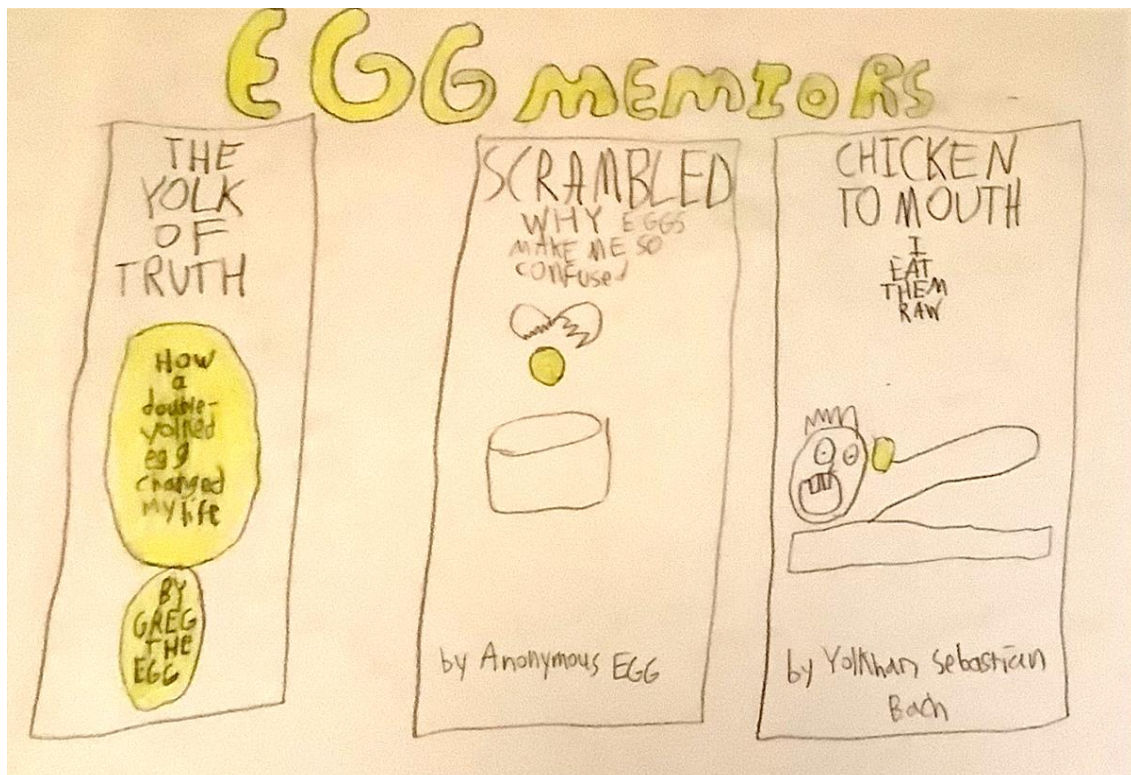 EGG MEMIORS
THE
YOLK
OF
TRUTH
How
a
double-
yolked
egg
changed
my life
BY
GREG
THE
EGG
SCRAMBLED
WHY EGGS
MAKE ME SO
confused
by Anonymous EGG
CHICKEN
TO MOUTH
I
EAT
THEM
RAW
by Yolkhan Sebastian
Bach